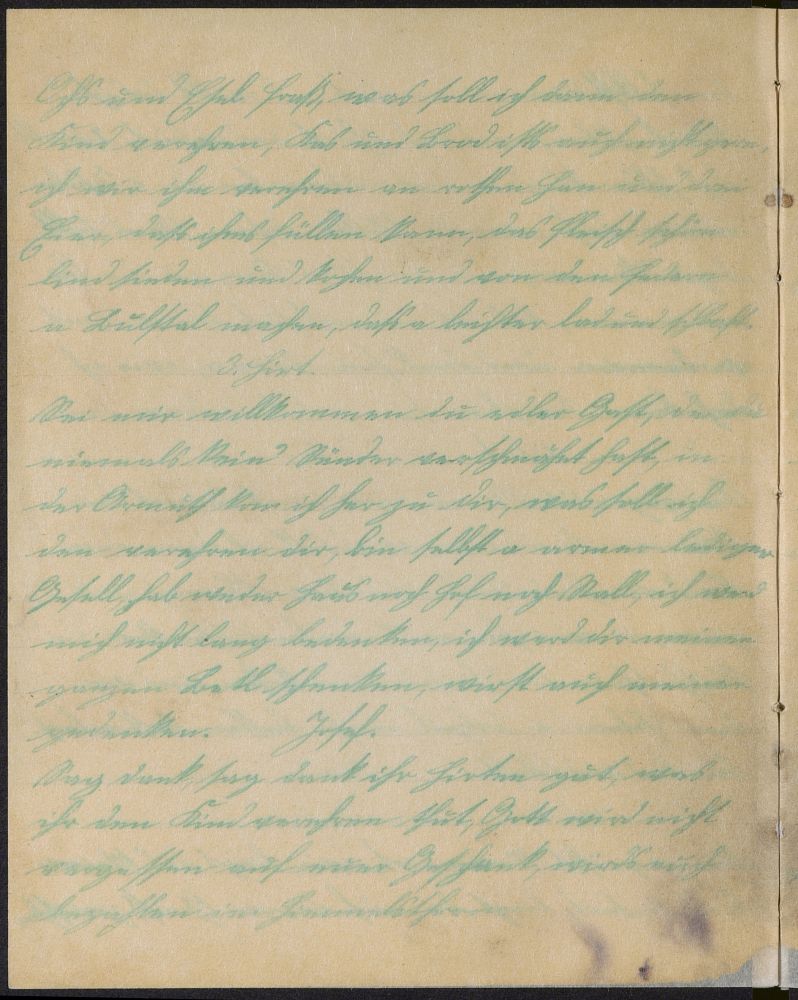 Ochs und Esel fraß, was soll ich dann dem
Kind verehren, Kas und Brod ists auch nicht gern,
ich wir ihm verehren an rothen Han und drei
Eier, daß ihms füllen kann, das Fleisch schön
lind sieden und kochen und von den Federn
a Bulstal machen, daß a leichter lad und schlaft.
3. Hirt.
Sei mir willkommen du edler Gast, der du
niemals kein Sünder verschmähet hast, in
der Armuth kom ich her zu dir, was soll ich
den verehren dir, bin selbst a armer lediger
Gesell, hab weder Haus noch Hof noch Stall, ich werd
mich nicht lang bedenken, ich werd dir meinen
ganzen Betl schenken, wirst auch meiner
gedenken. Josef.
Sag dank, sag dank ihr Hirten gut, was
ihr dem Kind verehren thut, Gott wird nicht
vergessen auf euer Geschenk, wirds euch
bezahlen im Himmelsthron